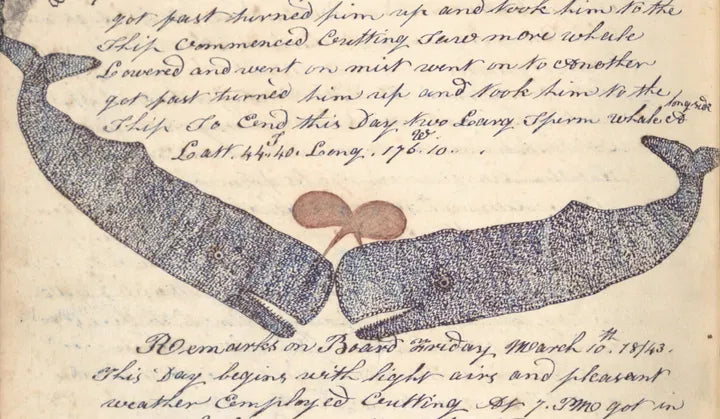 got fast turned him up and took him to the
Ship Commenced Cutting Saw more whale
Lowered and went on mist went on to Another
got fast turned him up and took him to the long side
Ship So End this Day two Larg Sperm whale
Latt. 44.40. S Long. 176.10. W.
Remarks on Board Friday March 10th 1843.
This Day begins with light airs and pleasant
weather Employed Cutting At 7. PM got in